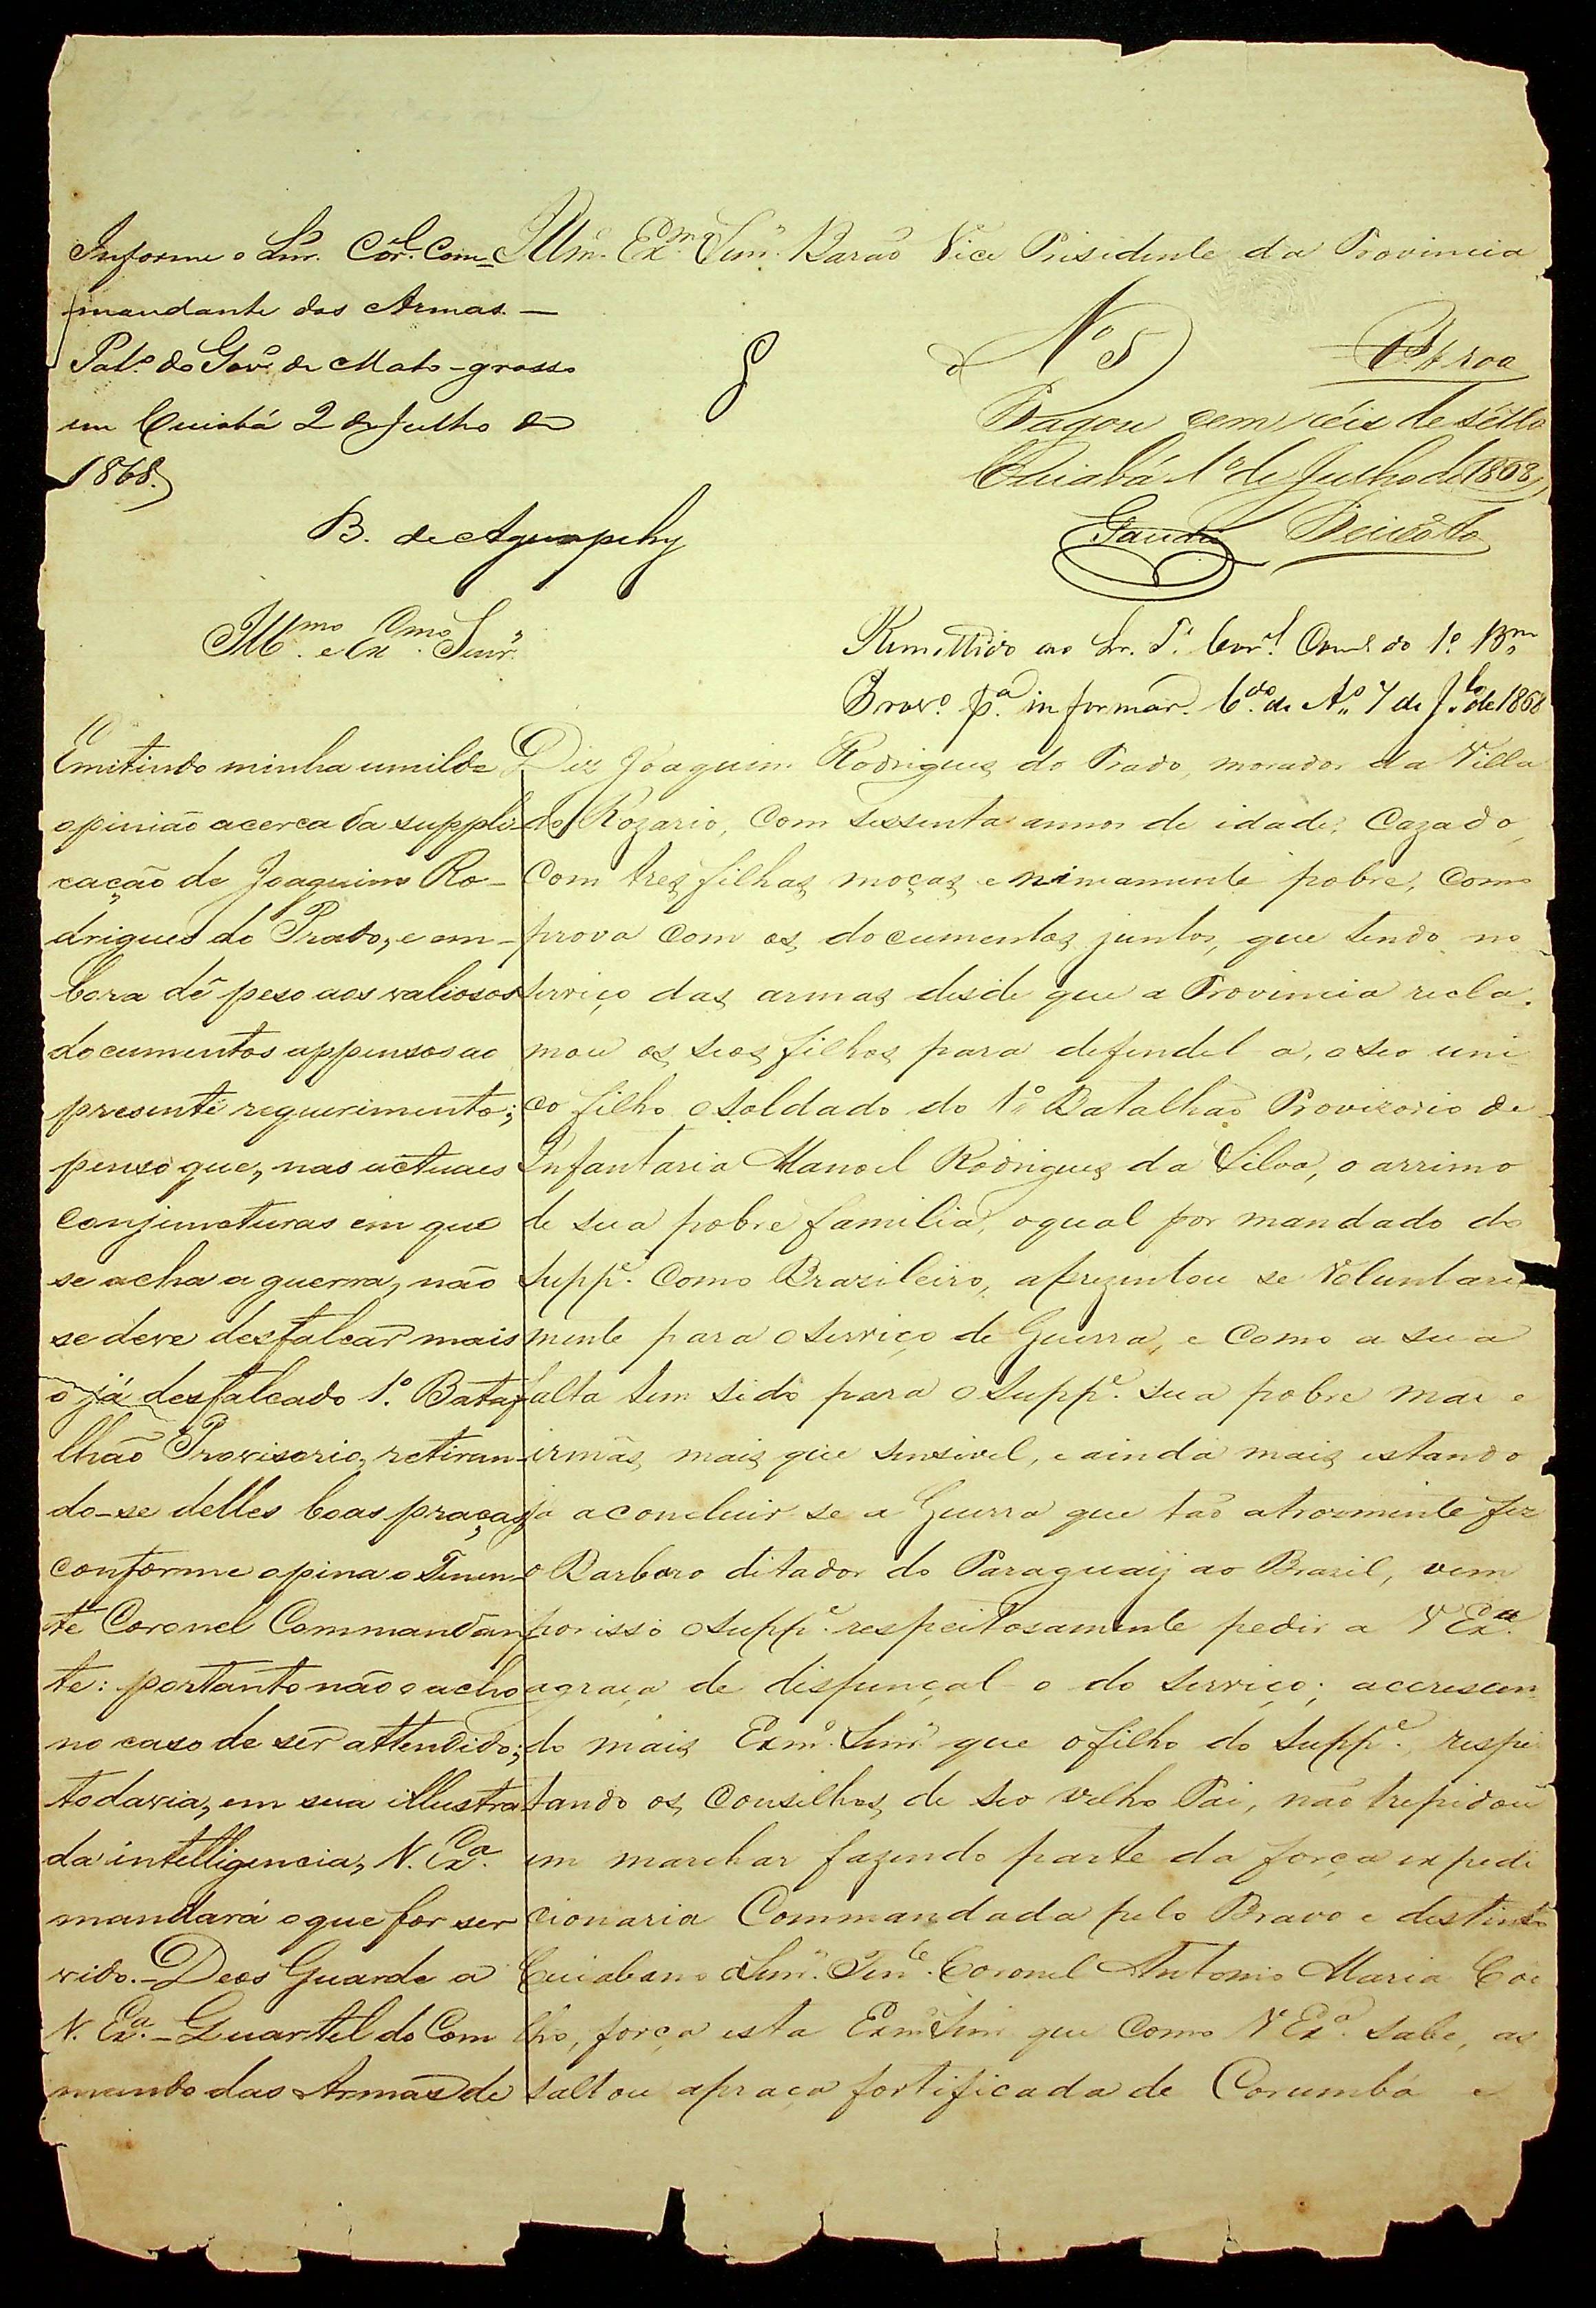 Informe o Snr. Cor.el Com-
mandante das Armas. —
Pal.o do Gov.o de Mato-grosso
em Cuiabá 2 de Julho de
1868.
B. de Aguapehy
Ill.mo e Ex.mo Snr.
Emitindo minha umilde
opinião acerca da suppli-
cação de Joaquim Ro-
drigues do Prado, e em-
bora dê peso aos valiosos
documentos appensos ao
presente requerimento;
penso que, nas actuaes
conjuncturas em que
se acha a guerra, não
se deve desfalcar mais
o já desfalcado 1.o Bata-
lhão Provisorio, retiran-
do-se delles boas praças
conforme opina o Tenen-
te Coronel Commandan-
te: portanto não o acho
no caso de ser attendido;
todavia, em sua illustra
da intelligencia, V. Ex.a
mandará o que for ser
vido. - Deos Guarde a
V. Ex.a - Quartel do Com
mando das Armas de
Illm.o Exm.o Snr. Barão Vice Prisidente da Provincia
N.o 5
100
Pagou cem réis de sêllo
Cuiabá 1.o de Julho de 1868
Peixôto
Remettido ao Sr. T.e Cor.el Com.e do 1.o B.m
Prov.o p.a informar. C.do de A.o 7 de J.lo de 1868
Diz Joaquim Rodrigues do Prado, morador da Villa
do Rozario, Com sessenta annos de idade, Cazado,
Com tres filhas moças e nimamente pobre, Como
prova Com os documentos juntos, que tendo no
serviço das armas desde que a Provincia recla-
mou os seos filhos para defendel a, o seo uni
co filho o soldado do 1.o Batalhão Provizorio de
Infantaria Manoel Rodrigues da Silva, o arrimo
de sua pobre familia, o qual por mandado do
Supp.e Como Brazileiro, aprezentou se Voluntaria
mente para o serviço de Guerra, e Como a sua
falta tem sido para o Supp.e sua pobre mãe e
irmãs mais que sensivel, e ainda mais estando
ja a concluir se a Guerra que tão atrosmente fez
o Barbaro ditador do Paraguaÿ ao Brazil, vem
por isso o Supp.e respeitosamente pedir a V Ex.a
a graça de dispençal o do serviço; accrescen
do mais Exm.o Snr. que o filho do Supp.e, respei
tando os Conselhos de seo velho Pai, não trepidou
em marchar fazendo parte da força expedi
cionaria Commandada pelo Bravo e destincto
Cuiabano o Snr. Ten.te Coronel Antonio Maria Coe
lho, força esta Exm.o Snr. que Como V Ex.a sabe, as
saltou a praça fortificada de Corumbá e